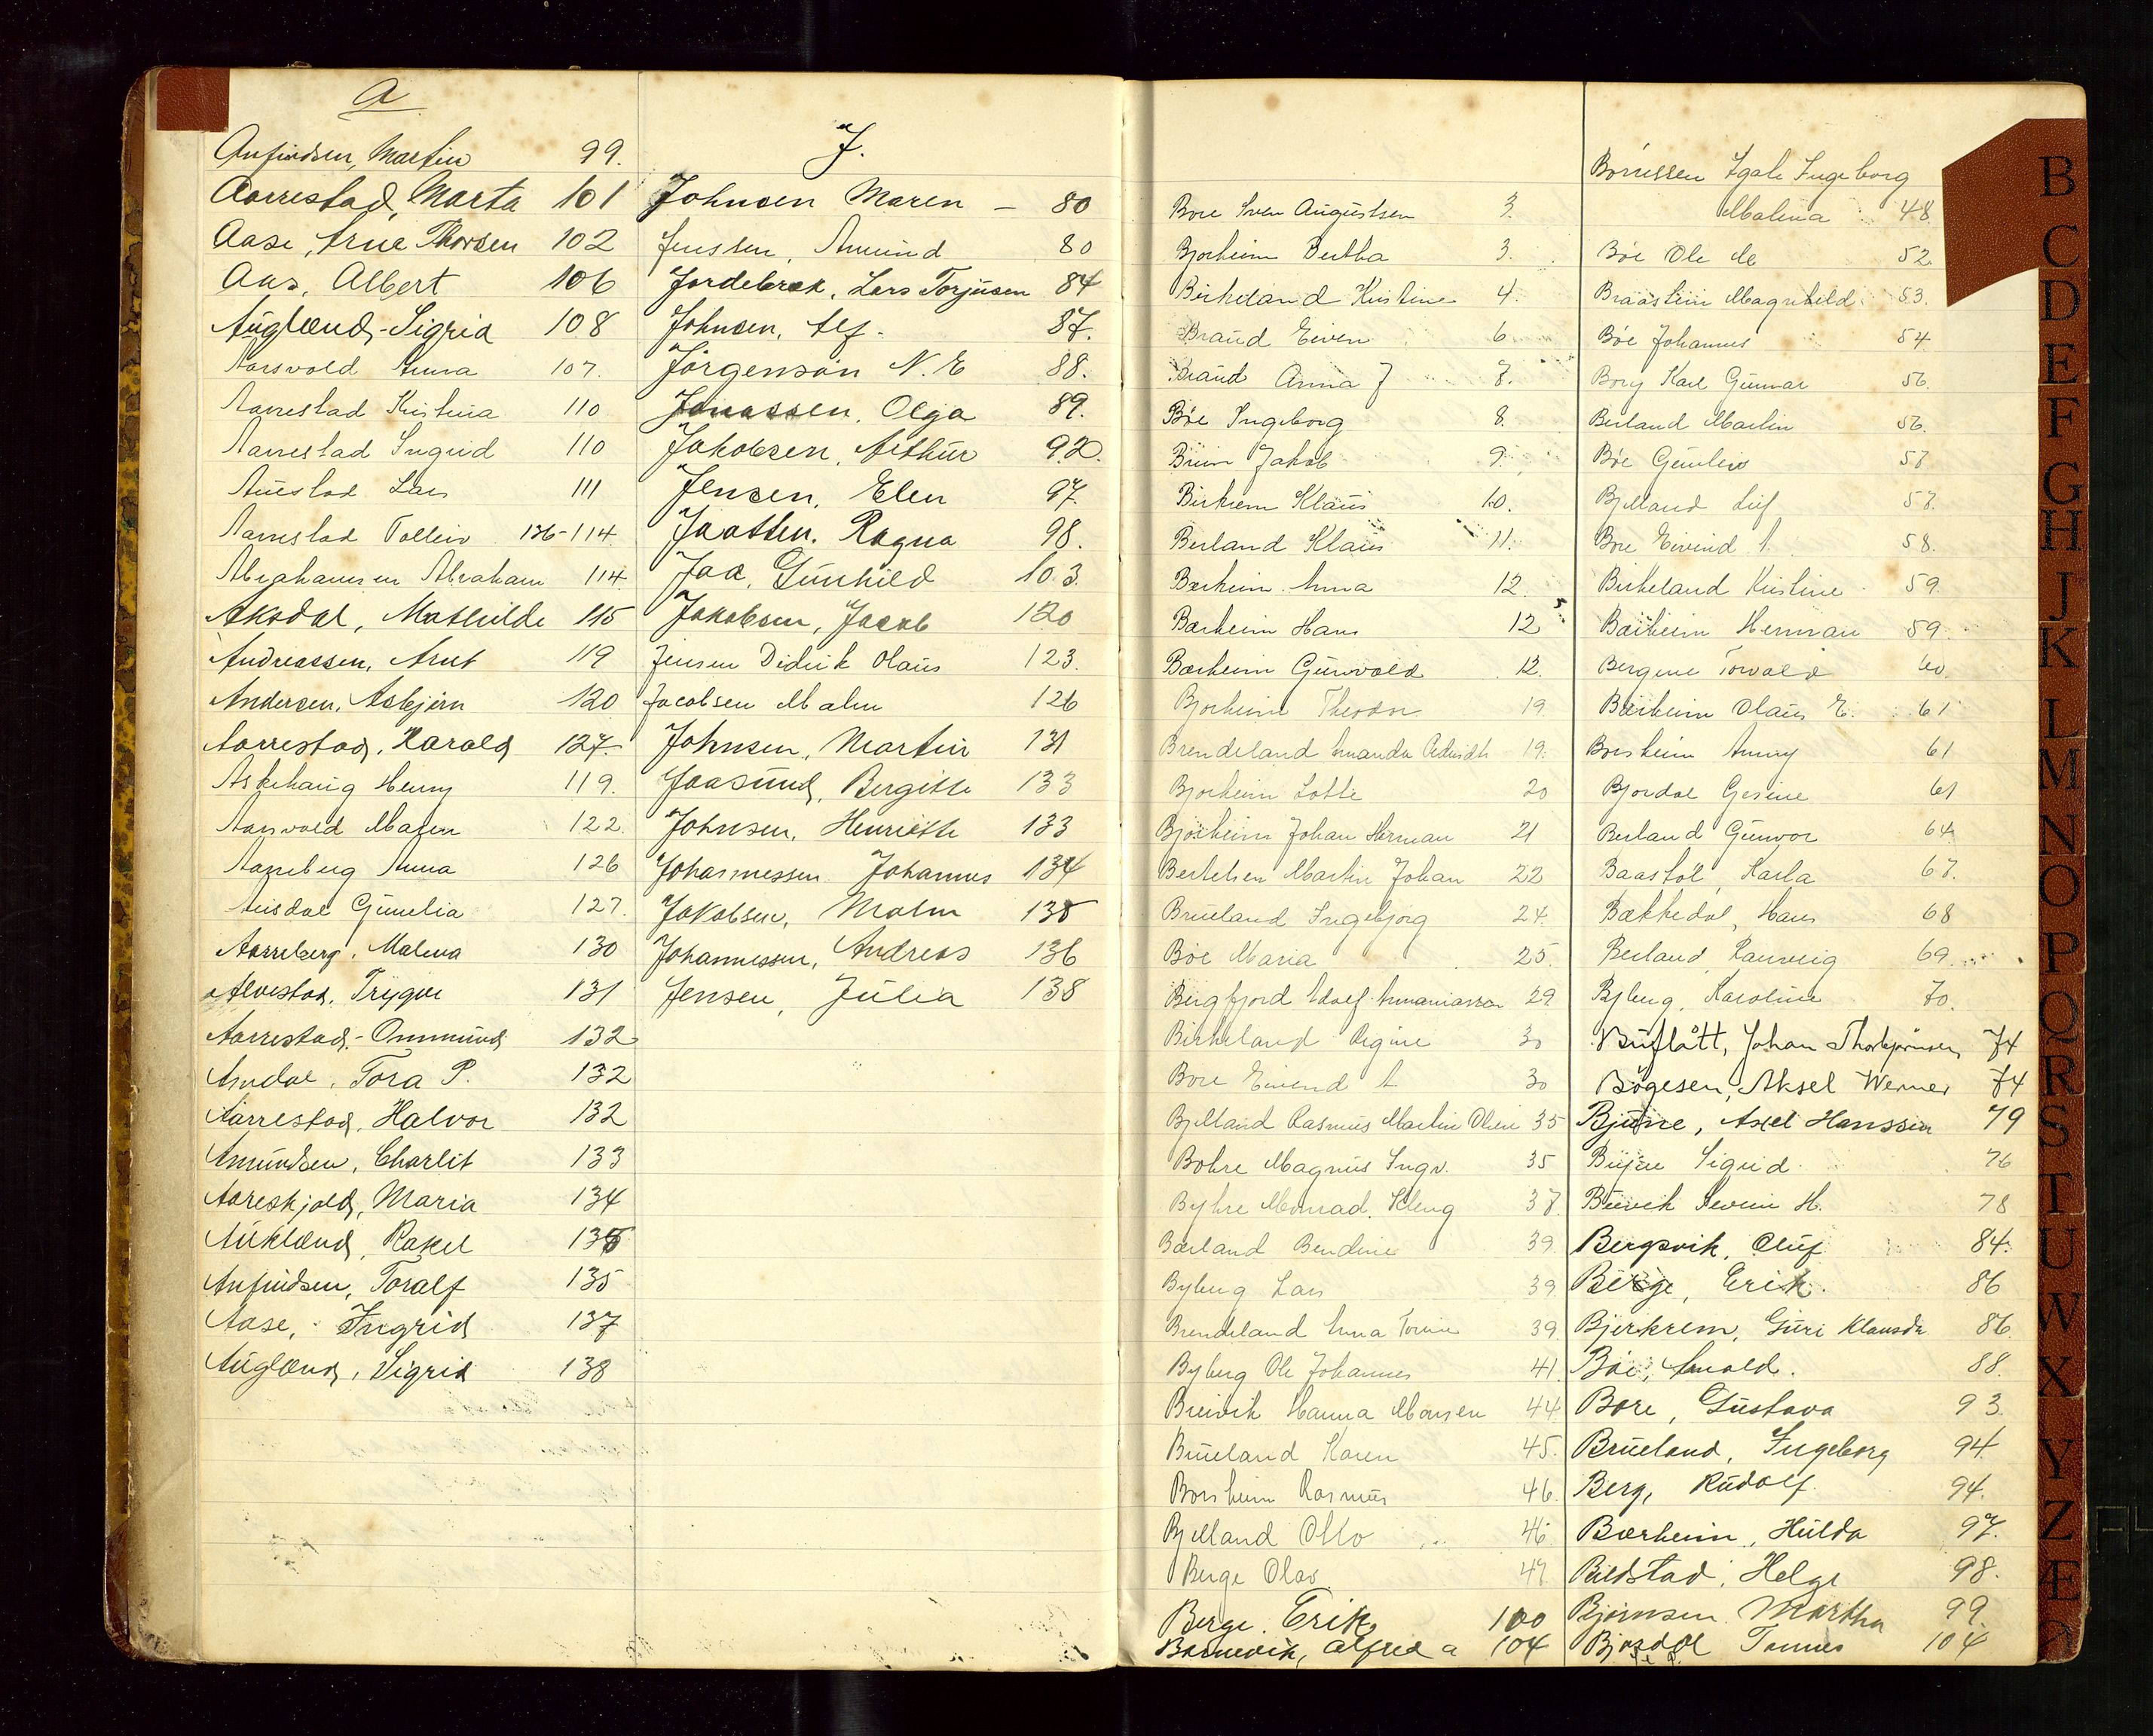 A
Anfindsen, Martin 99.
Aarrestad, Marta 101
Aase, Arne Thorsen 102
Aas, Albert 106
Augland, Sigrid 108
Aarsvold Anna 107.
Aarrestad Kristina 110
Aarrestad Ingrid 110
Austad Lars 111
Aarrestad Tolleiv 136-114
Abrahamsen Abraham 114
Aksdal, Mathilde 115
Andreassen, Arnt 119
Andersen, Asbjørn 120
Aarrestad, Harald 127
Askehaug Henry 119.
Aarsvold Maren 122.
Aareberg Anna 126
Aarsdal Gunelia 127.
Aarreberg, Malena 130
Alvestad, Trygve 131
Aarrestad, Ommund 132
Amdal, Tora P. 132
Aarrestad, Halvor 132
Amundsen, Charlit 133
Aareskjold, Maria 134
Aukland, Rakel 135
Anfindsen, Toralf 135
Aase, Ingrid 137
Augland, Sigrid 138
J.
Johnsen Maren - 80
Jenssen, Amund 80
Jordebrek, Lars Torjusen 84
Johnsen, Alf. 87.
Jørgensøn N. E 88.
Jonassen, Olga 89.
Jakobsen, Arthur 92.
Jensen, Elen 97.
Jaatten, Ragna 98.
Jaa, Gunhild 103.
Jakobsen, Jacob 120
Jensen Didrik Olaus 123.
Jacobsen Malm 126
Johnsen, Martin 131
Jaasund, Bergitte 133
Johnsen, Henriette 133
Johannessen Johannes 134
Jakobsen, Malm 135
Johannessen, Andreas 136
Jensen, Julia 138
Bore Sven Augustsen 3.
Bjorheim Bertha 3.
Birkeland Kristine 4.
Braud Eiven 6
Braud Anna J 7.
Bøe Ingeborg 8.
Brun Jakob 9.
Birkrem Klaus 10.
Berland Klaus 11.
Bærheim Anna 12.
Bærheim Hans 12
Bærheim Gunvald 12.
Bjorheim Theodor 19.
Brendeland Amanda 19.
Bjorheim Lotte 20
Bjorheim Johan Herman 21
Bertelsen Martin Johan 22
Brueland Ingebjørg 24.
Bøe Maria 25
Bergfjord Adolf 29
Birkeland Regine 30
Bore Eivend A 30
Bjelland Rasmus Martin Olsen 35
Bohre Magnus Ingv. 35
Byhre Monrad, Kleng 37.
Bærland Bendine 39.
Byberg Lars 39
Brendeland Anna Tomine 39
Byberg Ole Johannes 41
Breivik Hanna Monsen 44
Brueland Karen 45.
Borsheim Rasmus 46.
Bjelland Otto 46
Berge Olav 47
Berge, Erik 100
Barnevik, Alfred a 104
Børresen Ingeborg
Malena 48
Bøe Ole M 52
Braastein Magnhild 53.
Bøe Johannes 54
Borg Karl Gunnar 56.
Berland Martin 56.
Bøe Gunleiv 57
Bjelland Leif 57.
Bore Eivind A. 58.
Birkeland Kristine 59.
Bærheim Herman 59.
Bergene Torvald 60.
Bærheim Olaus E. 61
Borsheim Anny 61
Bjordal Gesine 61
Berland Gunvor 64
Baastøl, Karla 67.
Bækkedal, Hans 68
Berland, Ranveig 69
Byberg, Karoline 70.
Buflått, Johan Thorbjørnsen 74
Bøgesen, Aksel Werner 74
Bjune, Axel Hanssen 79
Sigrid 76
Severin H. 78
Bergsvik, Oluf 84.
Berge, Erik. 86
Bjerkrem, Guri Klausdr 86.
Bøe, Arnold. 88.
Bore, Gustava 93.
Brueland, Ingeborg 94.
Berg, Rudolf. 94.
Bærheim, Hulda 97.
Bildstad, Helge 98.
Bjørnsen Martha 99
Bjordal Tønnes 104
B
C
D
E
F
G
H
J
K
L
M
N
O
P
Q
R
S
T
U
W
X
Y
Z
Æ